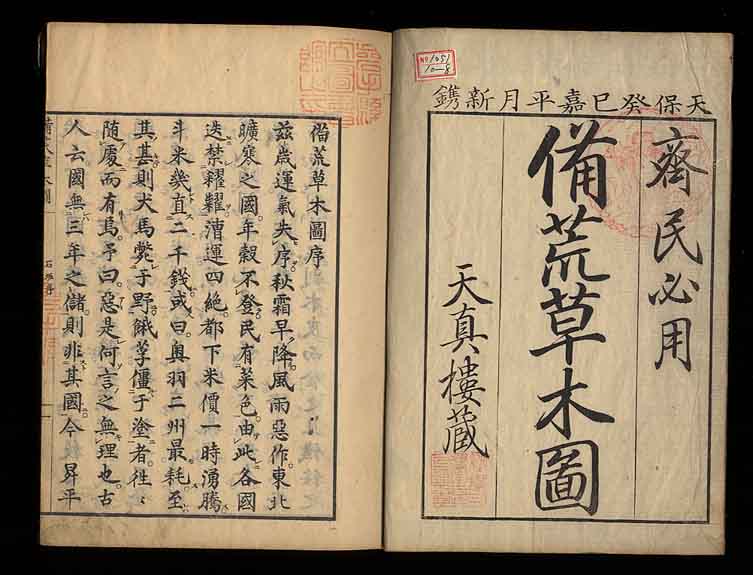 天保癸巳嘉平月新鐫
齊民必用
備荒草木圖
天真樓蔵
俻荒草木圖序
茲歳運氣失序。秋霜早降。風雨惡作。東北
曠寒之國。年穀不登。民有菜色。由此各國
迭禁糴糶。漕運四絶。都下米價一時湧騰。
斗米幾直二千錢。或曰。奥羽二州最耗。至
其甚。則犬馬斃于野。餓莩僵于塗者。往〻
随處而有焉。予曰。惡是何言之無理也。古
人云。國無三年之儲。則非其國。今昇平